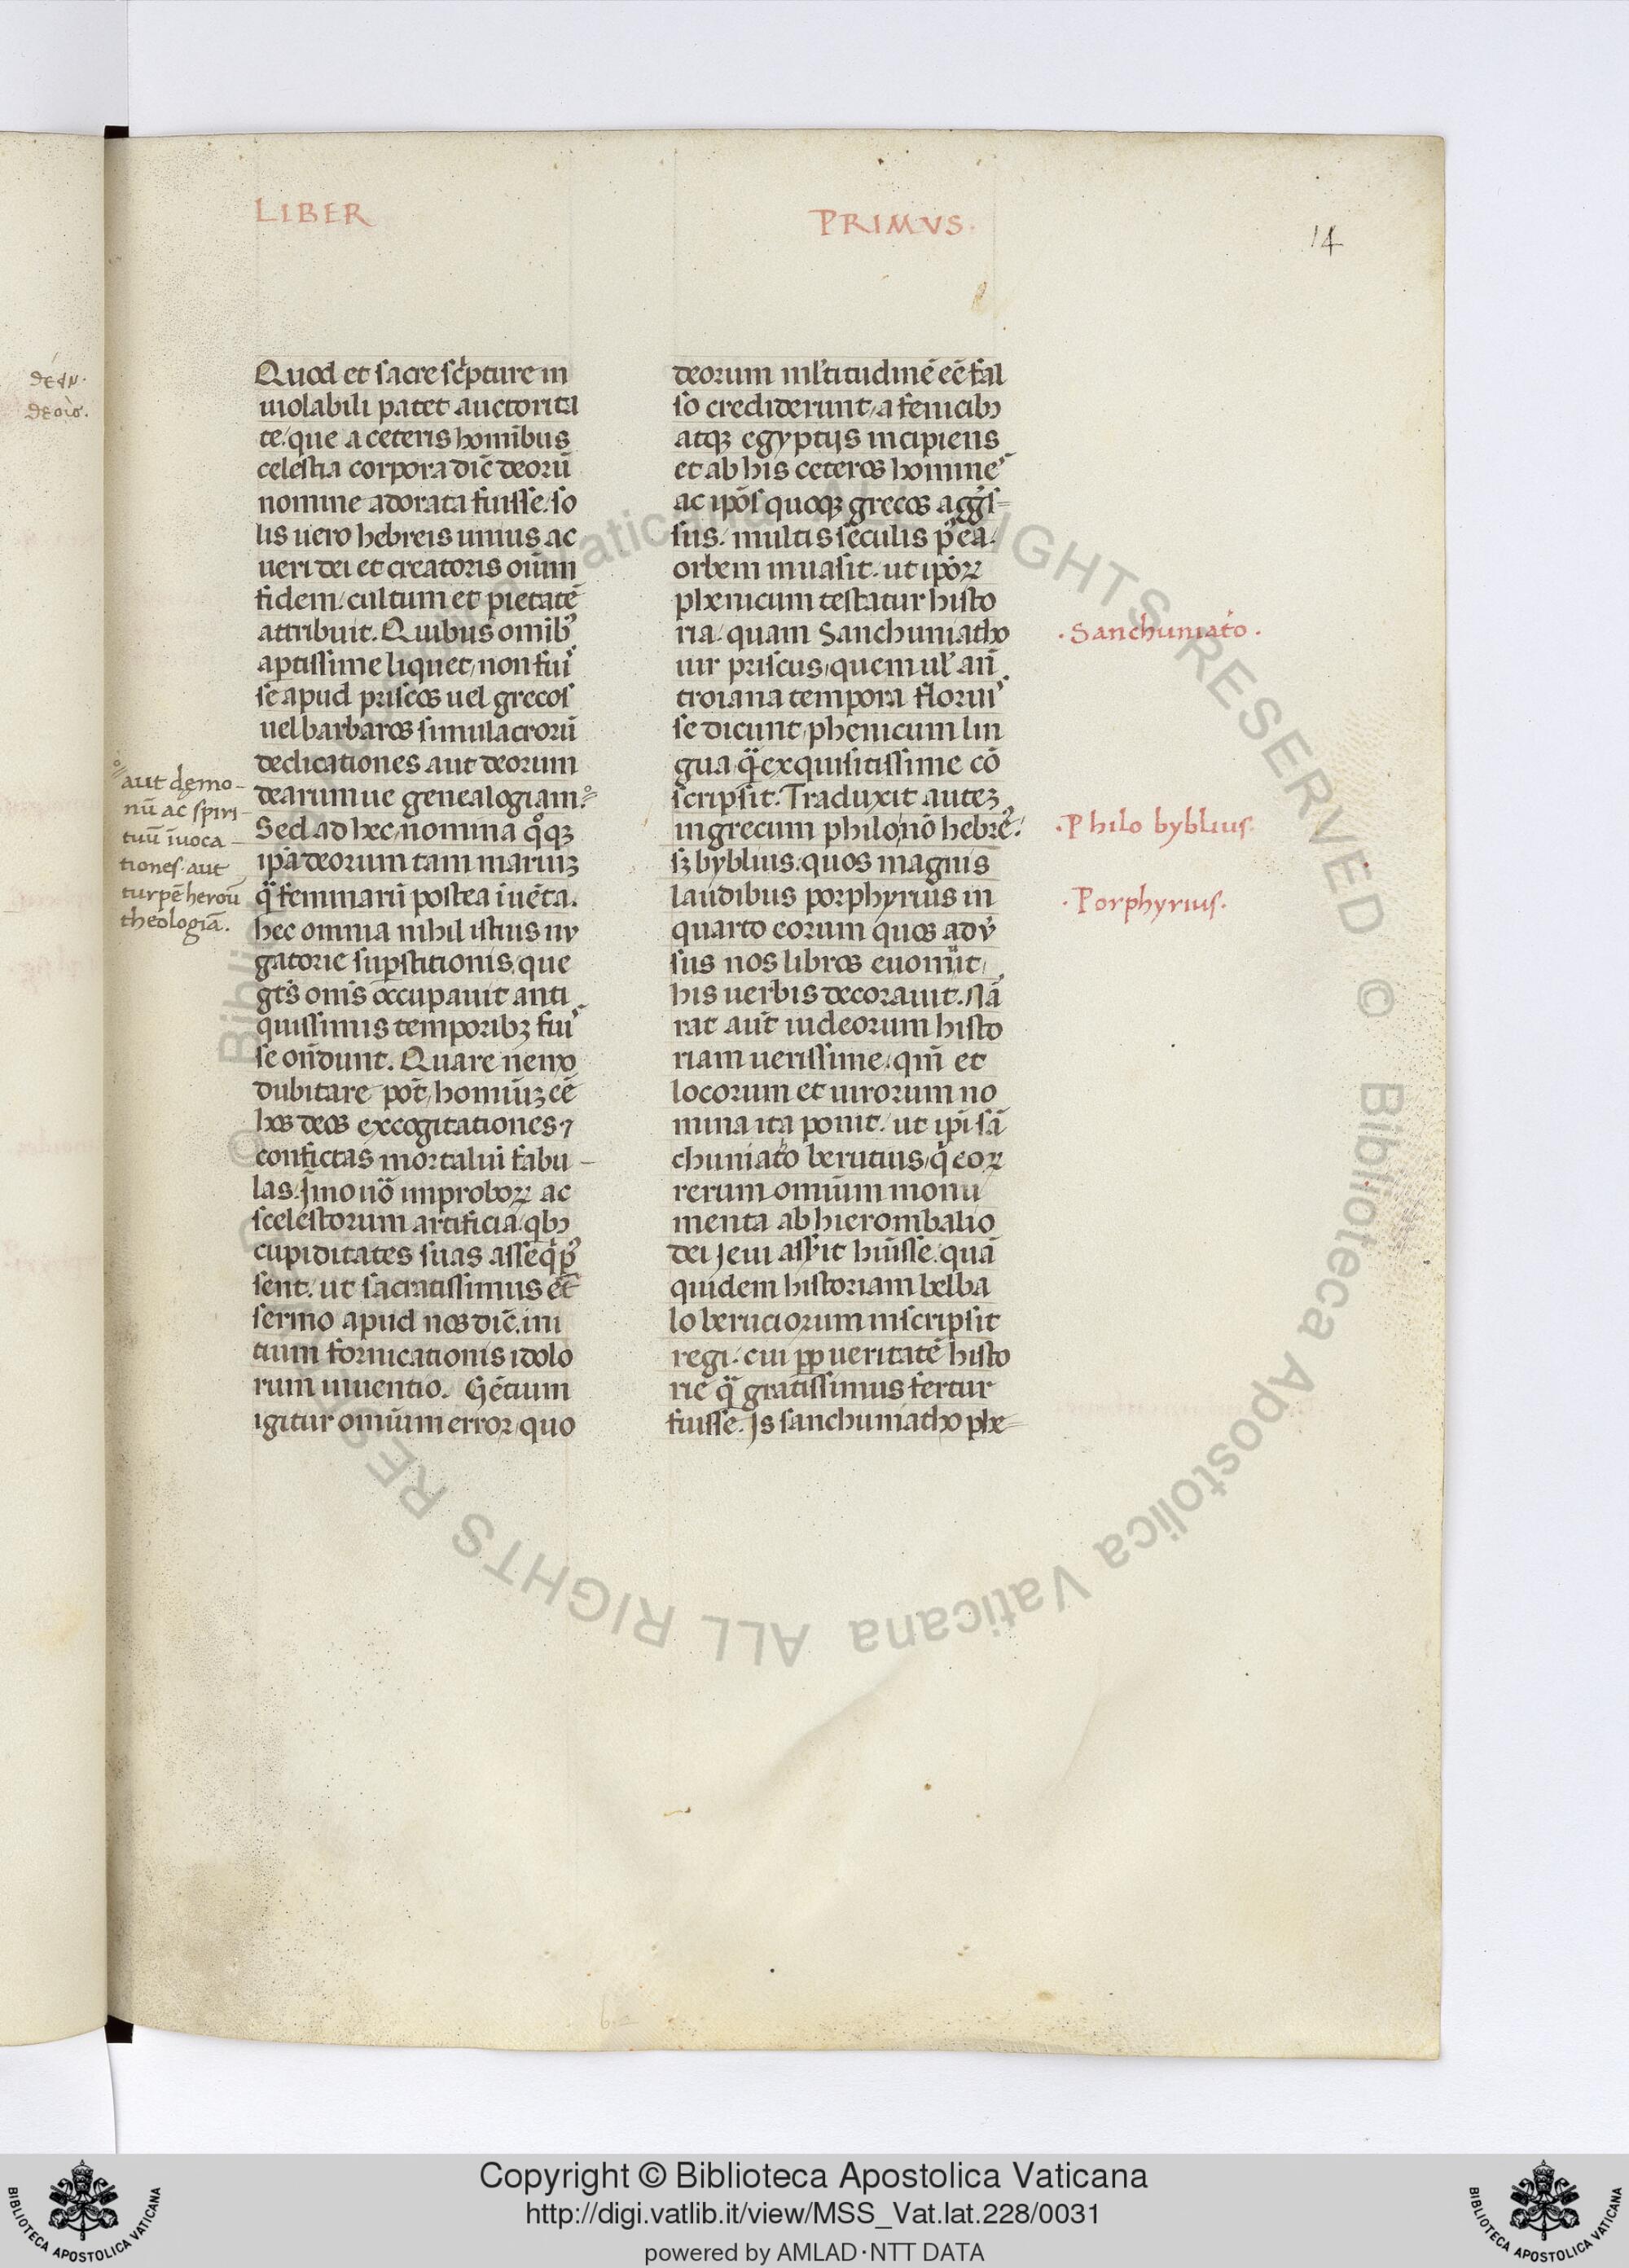 LIBER
PRIMVS.
14
Quod et sacre sc̄pture in
uiolabili patet auctorita
te. que a ceteris hominibus
celestia corpora dic̄ deorū
nomine adorata fuisse. so
lis uero hebreis unius ac
ueri dei et creatoris oīum
fidem. cultum et pietatē
attribuit. Quibus omib᾽
aptissime liquet, non fuis
se apud priscos uel grecos
uel barbaros simulacrorū
dedicationes aut deorum
dearumue genealogiam.
Sed ad hec, nomina qͦqꝫ
ip̄a deorum tam mariuꝫ
q̄ feminarū postea īuēta.
hec omnia nihil istius nu
gatorie suꝑstitionis, que
gēs on̄is occupauit anti
quissimis temporibꝫ fuis
se on̄dunt. Quare nemo
dubitare pōt, homīuꝫ eē
hos deos excogitationes ⁊
confictas mortaluī fabu-
las. Jmo uō improboꝝ ac
scelestorum artificia. qbꝫ
cupiditates suas asseq̄
sent. ut sacratissimus et̄
sermo apud nos dic̄. ini
tium fornicationis idolo
rum inuentio. Gētium
igitur omnium error, quo
aut dęmo-
nū ac spiri-
tuū īuoca-
tiones. aut
turpē heroū
theologiā.
deorum ml̄titudinē eē fal
so crediderunt, a fenicibꝫ
atqꝫ egyptijs incipiens
et ab his ceteros homines
ac ip̄os quoqꝫ grecos aggͥs=
sus. multis seculis p̄ ea.
orbem inuasit. ut ip̄oꝝ
phenicum testatur histo
ria. quam Sanchuniatho
uir priscus, quem ul̄ an̄
troiana tempora floruis
se dicunt, phenicum lin
gua q̄ exquisitissime cō
scripsit. Traduxit auteꝫ
in grecum philo, nō hebreꝰ.
sꝫ byblius. quos magnis
laudibus porphyrius in
quarto eorum quos aduͥ
sus nos libros euomūit,
his uerbis decorauit. Nā
rat aūt iudeorum histo
riam uerissime, qm̄ et
locorum et uirorum no
mina ita ponit. ut ip̄i sā
chuniato berutius, q̄ eoꝝ
rerum omnium monu
menta ab hierombalio
dei Jeui ass̄it huīsse. quā
quidem historiam belba
lo beruciorum inscripsit
regi. cui ꝓp ueritatē histo
rie q̄ gratissimus fertur
fuisse. Js sanchuniatho phe=
· Sanchuniato .
·Philo byblius.
· Porphyrius.
Copyright © Biblioteca Apostolica Vaticana
http://digi.vatlib.it/view/MSS_Vat.lat.228/0031
powered by AMLAD·NTT DATA
BIBLIOTECA APOSTOLICA VATICANA
BIBLIOTECA APOSTOLICA VATICANA
© Biblioteca Apostolica Vaticana ALL RIGHTS RESERVED © Biblioteca Apostolica Vaticana ALL RIGHTS RESERVED